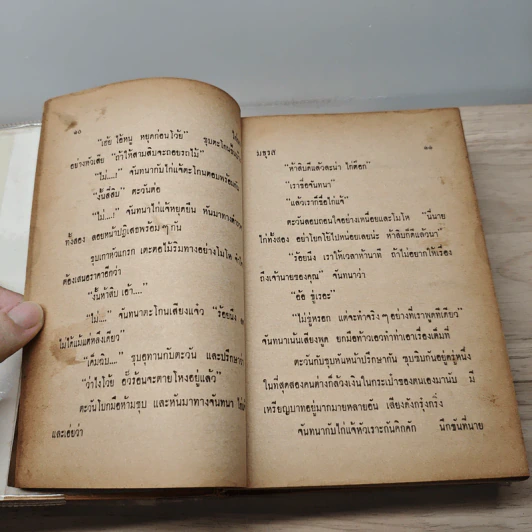 ๑๐
"เฮ้ย ไอ้หนู หยุดก่อนโว้ย" ชุบตะโกน
อย่างหัวเสีย "ถ้าให้สามสิบจะถอยรถไม้"
"ไม่....!" จันทนากับไก่แจ้ตะโกนตอบพร้อม
"งั้นสี่สิบ" ตะวันต่อ
"ไม่....!" จันทนาไก่แจ้หยุดยืน หันมาทาง
ทั้งสอง ลอยหน้าปฏิเสธพร้อมๆกัน
ชุบเกาหัวแกรก เตะตอไม้ริมทางอย่างโมโห
ต้องเสนอราคาอีกว่า
"งั้นห้าสิบ เอ้า...."
"ไม่...." จันทนาตะโกนเสียงแจ๋ว "ร้อยนึง
ไม่ได้แม้แต่สลึงเดียว"
"เต็มซิบ...." ชุบอุทานกับตะวัน และปรึกษา
"ว่าไงโว้ย อั๊วร้อนจะตายโหงอยู่แล้ว"
ตะวันโบกมือห้ามชุบ และหันมาทางจันทนา
และเอ่ยว่า
มธุรส
๑๑
"ห้าสิบดีแล้วละน่า ไก่ต๊อก"
"เราชื่อจันทนา"
"แล้วเราก็ชื่อไก่แจ้"
ตะวันสอบถอนใจอย่างเหนื่อยและโมโห "นี่นาย
ไก่ทั้งสอง อย่าโยกโย้ไปหน่อยเลยน่ะ ห้าสิบก็ดีแล้วนา"
"ร้อยนึง เราให้เวลาห้านาที ถ้าไม่อยากให้เรื่อง
ถึงเจ้านายของคุณ" จันทนาว่า
"อ้อ ขู่เรอะ"
"ไม่ขู่หรอก แต่จะทำจริงๆอย่างที่เราพูดทีเดียว"
จันทนาเน้นเสียงพูด ยกมือท้าวเอวทำท่าเอาเรื่องเต็มที่
ตะวันกับชุบหันหน้าปรึกษากัน ซุบซิบกันอยู่ครู่หนึ่ง
ในที่สุดสองคนต่างก็ล้วงเงินในกระเป๋าของตนเองมานับ มี
เหรียญบาทอยู่มากมายหลายอัน เสียงดังกรุ๋งกริ๋ง
จันทนากับไก่แจ้หัวเราะกันคิกคัก นึกขันที่นาย